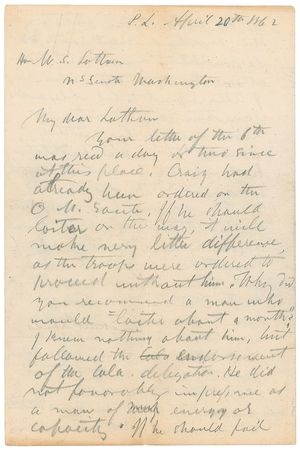 P. L. April 20th 1862
Hon M. S. Latham
U S Senate Washington
My dear Latham
Your letter of the 6th
was recd a day or two since
at this place. Craig had
already been ordered on the
O M. Route. If he should
loiter on the way, it will
make very little difference,
as the troops were ordered to
proceed without him. Why did
you recommend a man who
would "loiter about a month"?
I knew nothing about him, but
followed the endorsement
of the Cala. delegation. He did
not favorably impress me as
a man of much energy or
capacity. If he should fail